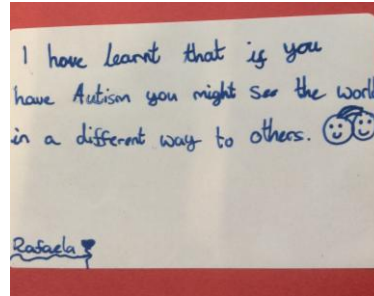 I have learnt that if you
have Autism you might see the world
in a different way to others.
Rafaela